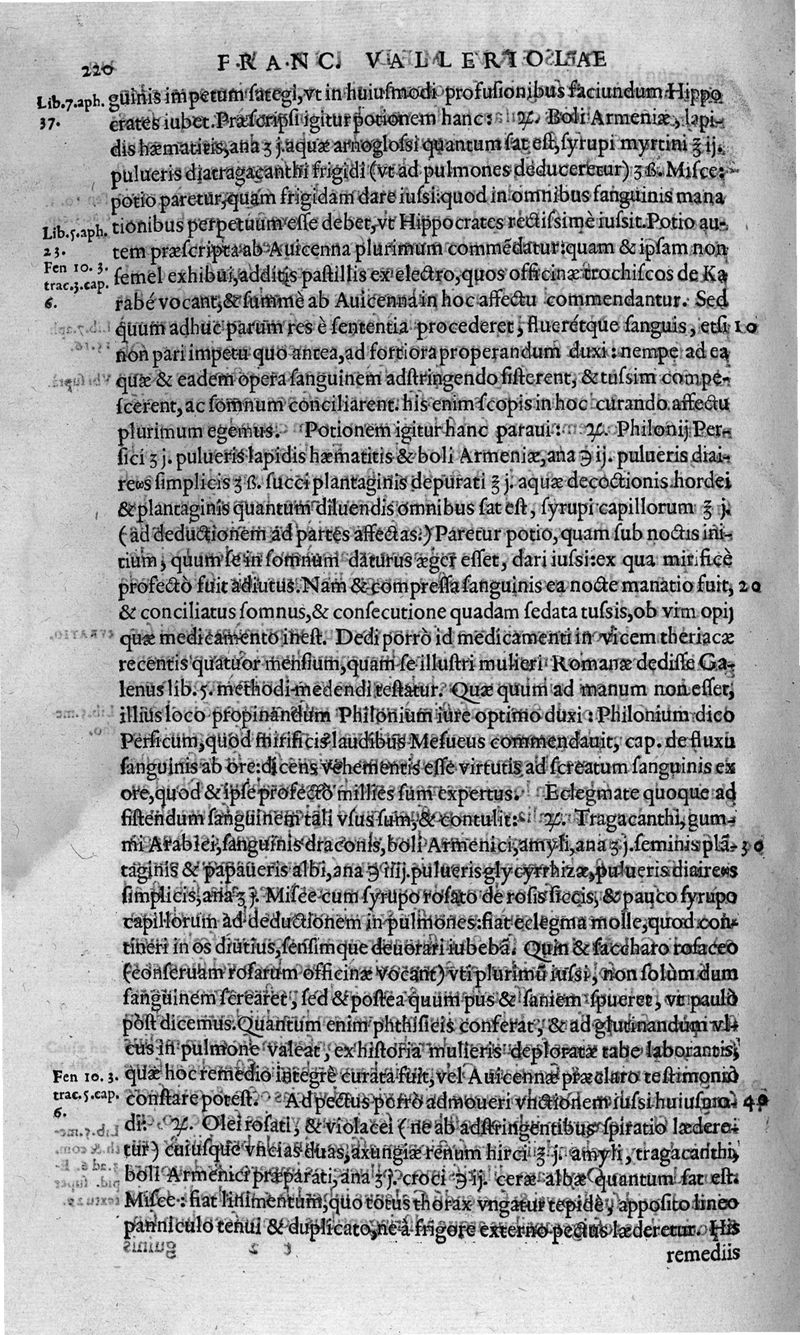 220 FRANC. VALLERIOLAE
Lib.7.aph. guinis impetum sategi, vt in huiusmodi profusionibus faciundum Hippo
37. crates iubet. Præscripsi igitur potionem hanc: ℞. Boli Armeniæ, lapi
dis hæmatitis, ana ʒ j. aquæ arnoglossi quantum sat est, syrupi myrtini ℥ ij.
pulueris diatragacanthi frigidi (vt ad pulmones deduceretur) ʒ ß. Misce:
potio paretur, quam frigidam dare iussi: quod in omnibus sanguinis mana
Lib.5.aph. tionibus perpetuum esse debet, vt Hippocrates rectissimè iussit. Potio au-
23. tem præscripta ab Auicenna plurimum commēdatur: quam & ipsam non
Fen 10. 3. semel exhibui, additis pastillis ex electro, quos officinæ trochiscos de Ka
trac.3.cap. 6. rabé vocant, & summè ab Auicenna in hoc affectu commendantur. Sed
quum adhuc parum res è sententia procederet, fluerétque sanguis, etsi 10
non pari impetu quo antea, ad fortiora properandum duxi: nempe ad ea
quæ & eadem opera sanguinem adstringendo sisterent, & tussim compe-
scerent, ac somnum conciliarent. his enim scopis in hoc curando affectu
plurimum egemus. Potionem igitur hanc paraui: ℞. Philonij Per-
sici ʒ j. pulueris lapidis hæmatitis & boli Armeniæ, ana ℈ ij. pulueris diai-
reos simplicis ʒ ß. succi plantaginis depurati ℥ j. aquæ decoctionis hordei
& plantaginis quantum diluendis omnibus sat est, syrupi capillorum ℥ j.
(ad deductionem ad partes affectas.) Paretur potio, quam sub noctis ini-
tium, quum se in somnum daturus æger esset, dari iussi: ex qua mirificè
profectò fuit adiutus. Nam & compressa sanguinis ea nocte manatio fuit, 20
& conciliatus somnus, & consecutione quadam sedata tussis, ob vim opij
quæ medicamento inest. Dedi porrò id medicamenti in vicem theriacæ
recentis quatuor mensium, quam se illustri mulieri Romanæ dedisse Ga-
lenus lib. 5. methodi medendi testatur. Quæ quum ad manum non esset,
illius loco propinandum Philonium iure optimo duxi: Philonium dico
Persicum, quod mirificis laudibus Mesueus commendauit, cap. de fluxu
sanguinis ab ore: dicens vehementis esse virtutis ad screatum sanguinis ex
ore, quod & ipse profectò millies sum expertus. Eclegmate quoque ad
sistendum sanguinem tali vsus sum, & contulit: ℞. Tragacanthi, gum-
mi Arabici, sanguinis draconis, boli Armenici, amyli, ana ʒ j. seminis plā- 30
taginis & papaueris albi, ana ℈ iiij. pulueris glycyrrhizæ, pulueris diaireos
simplicis, ana ʒ j. Misce cum syrupo rosato de rosis siccis, & pauco syrupo
capillorum ad deductionem in pulmones: fiat eclegma molle, quod con-
tineri in os diutius, sensimque deuorari iubebā. Quin & saccharo rosaceo
(conseruam rosarum officinæ vocant) vti plurimū iussi, non solùm dum
sanguinem screaret, sed & postea quum pus & saniem spueret, vt paulò
pòst dicemus. Quantum enim phthisicis conferat, & ad glutinandum vl-
cus in pulmone valeat, ex historia mulieris deploratæ tabe laborantis,
Fen 10. 3. quæ hoc remedio integrè curata fuit, vel Auicennæ præclaro testimonio
trac.5.cap. 6. constare potest. Ad pectus porrò admoueri vnctionem iussi huiusmo- 40
di: ℞. Olei rosati, & violacei (ne ab adstringentibus spiratio læderε-
tur) cuiusque vncias duas, axungiæ renum hirci ℥ j. amyli, tragacanthi,
boli Armenici præparati, ana ʒ j. croci ℈ ij. ceræ albæ quantum sat est.
Misce: fiat linimentum, quo totus thorax vngatur tepidè, apposito lineo
panniculo tenui & duplicato, ne à frigore externo pectus læderetur. His
remediis